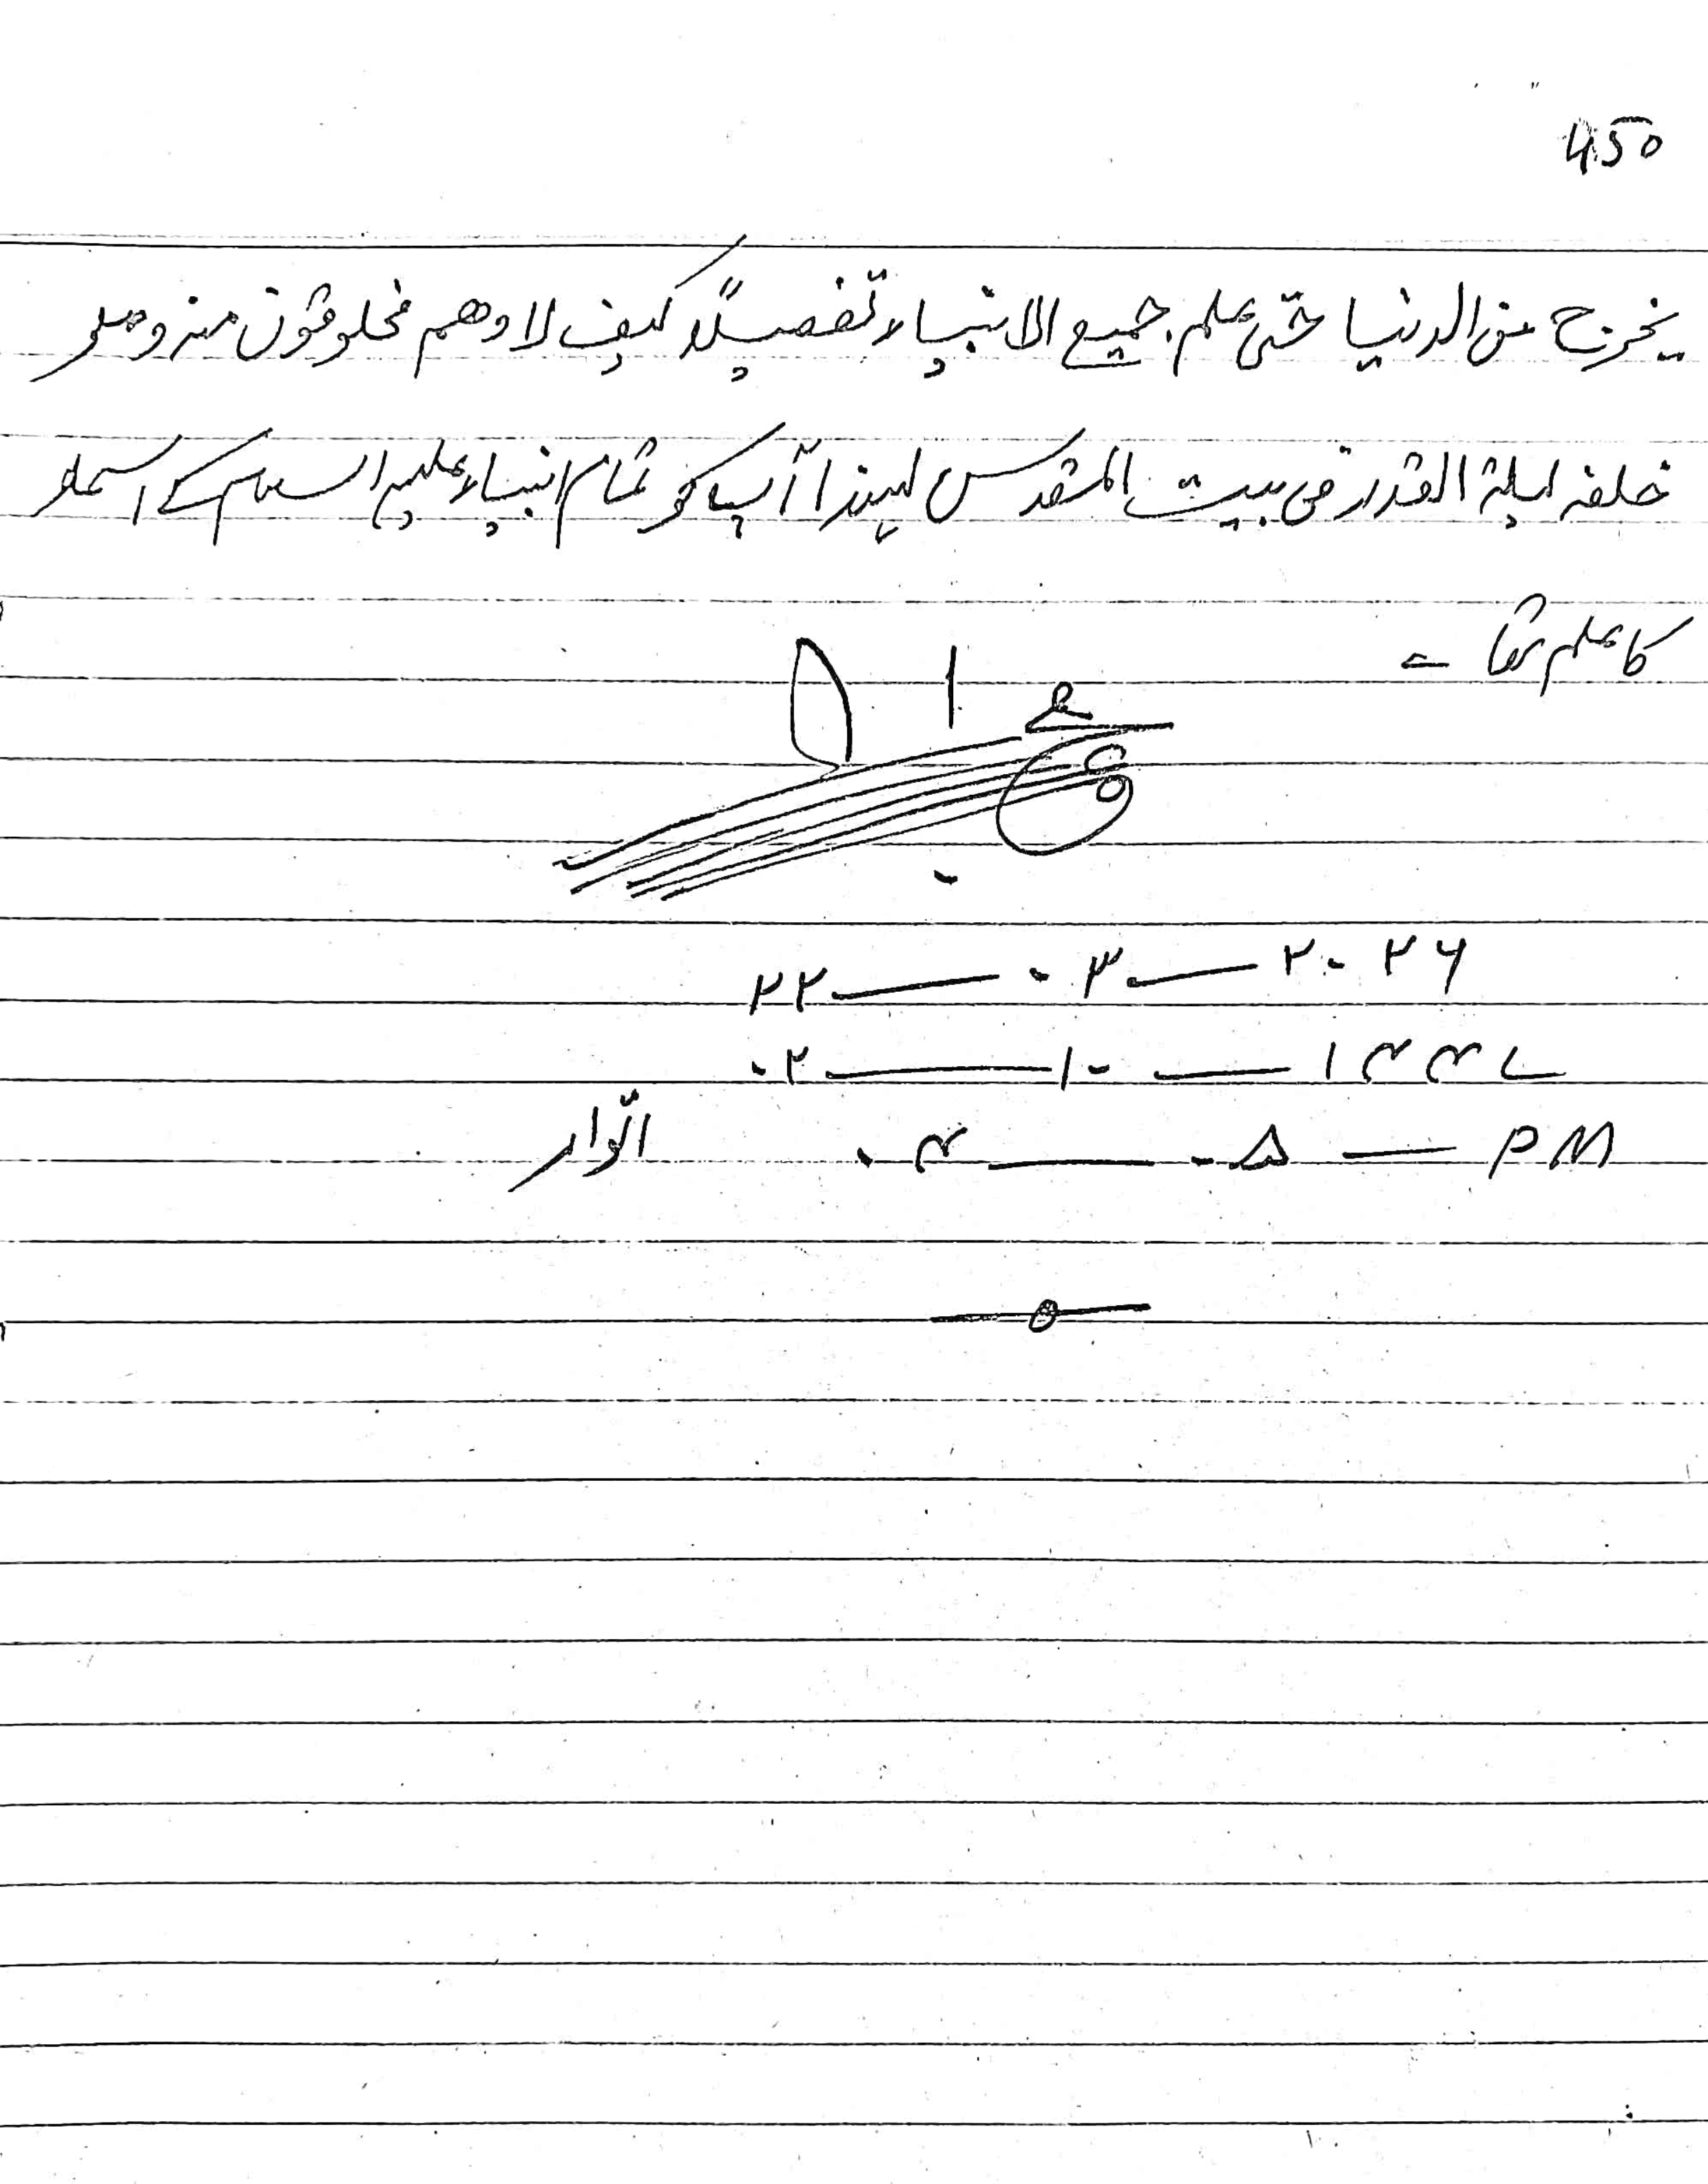 450
یخرج من الدنیا حتی علم جمیع الانبیاء تفصیلاً کیف لا وھم مخلوقون منہ وصلو
خلفہ لیلۃ القدر فی بیت المقدس لہذا آپ کو تمام انبیاء علیہم السلام کے اسماء
کا علم تھا ۔
۲۲ — ۰۳ — ۲۰۲۶
۰۲ — ۱۰ — ۱۴۴۷
۰۴ — ۰۵ — PM اتوار